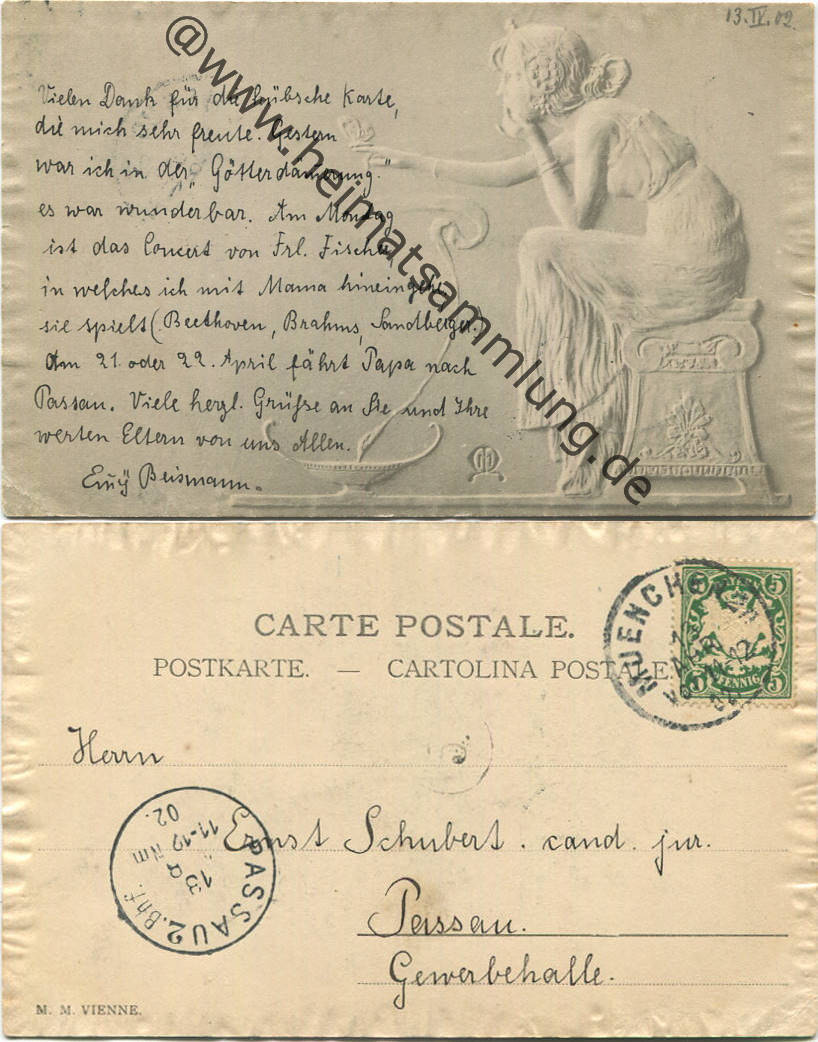 13.IV.02.
Vielen Dank für die hübsche Karte,
die mich sehr freute. Gestern
war ich in der „Götterdämerung."
es war wunderbar. Am Montag
ist das Concert von Frl. Fischer,
in welches ich mit Mama hineingehe
sie spielt (Beethoven, Brahms, Sandberger.)
Am 21. oder 22. April fährt Papa nach
Passau. Viele herzl. Grüße an Sie und Ihre
werten Eltern von uns Allen.
Beismann.
@www.heimatsammlung.de
CARTE POSTALE.
POSTKARTE. — CARTOLINA POSTALE
MUENCHEN
13
APR
11-12
5 5
PFENNIG
Herrn
Ernst Schubert. cand. jur.
Passau.
Gewerbehalle.
PASSAU 2. Bhf.
13
11-12
02.
M. M. VIENNE.